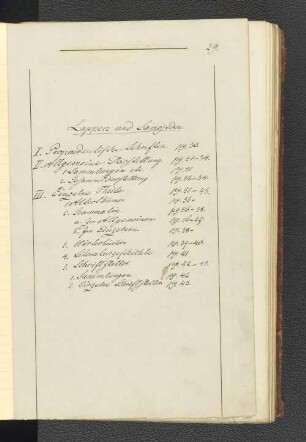 29.
Lappen und Samojeden
I. Propaedeutische Schriften pg. 30.
II. Allgemeine Darstellung pg. 31-34.
1. Sammlungen etc. pg. 31
2. Gesammtdarstellung pg. 32-34.
III. Einzelne Theile pg. 35-43.
1. Alterthümer pg. 35-
2. Grammatik pg. 36-38.
a. Im Allgemeinen pg. 36-37.
b. Im Einzelnen pg. 38-
3. Wörterbücher pg. 39-40.
4. Literaturgeschichte pg. 41
5. Schriftsteller pg. 42-43.
1. Sammlungen pg. 42
2. Einzelne Schriftsteller pg. 43.